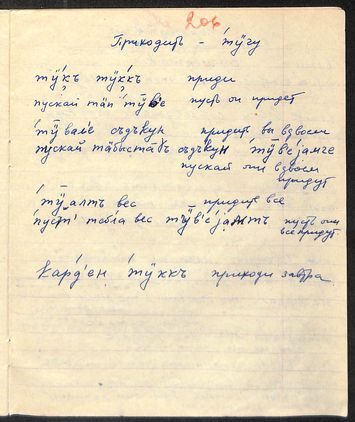 206
Приходить – тӱгу
тӱкъ тӱккъ приди
пускай тäп тӱве пусть он придет
тӱвале съдъкун придите вы вдвоем
пускай тäбыстаӷъ съдъкун тӱв'еjамге
пускай они вдвоем
придут
тӱалть вес придите все
пуст' тебла вес тӱв'еjамтъ пусть они
все придут
Кар'д'ен тӱккъ приходи завтра